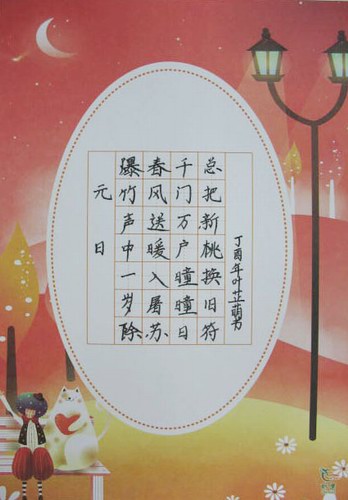 元日
爆竹声中一岁除
春风送暖入屠苏
千门万户瞳瞳日
总把新桃换旧符
丁酉年叶芷萌书